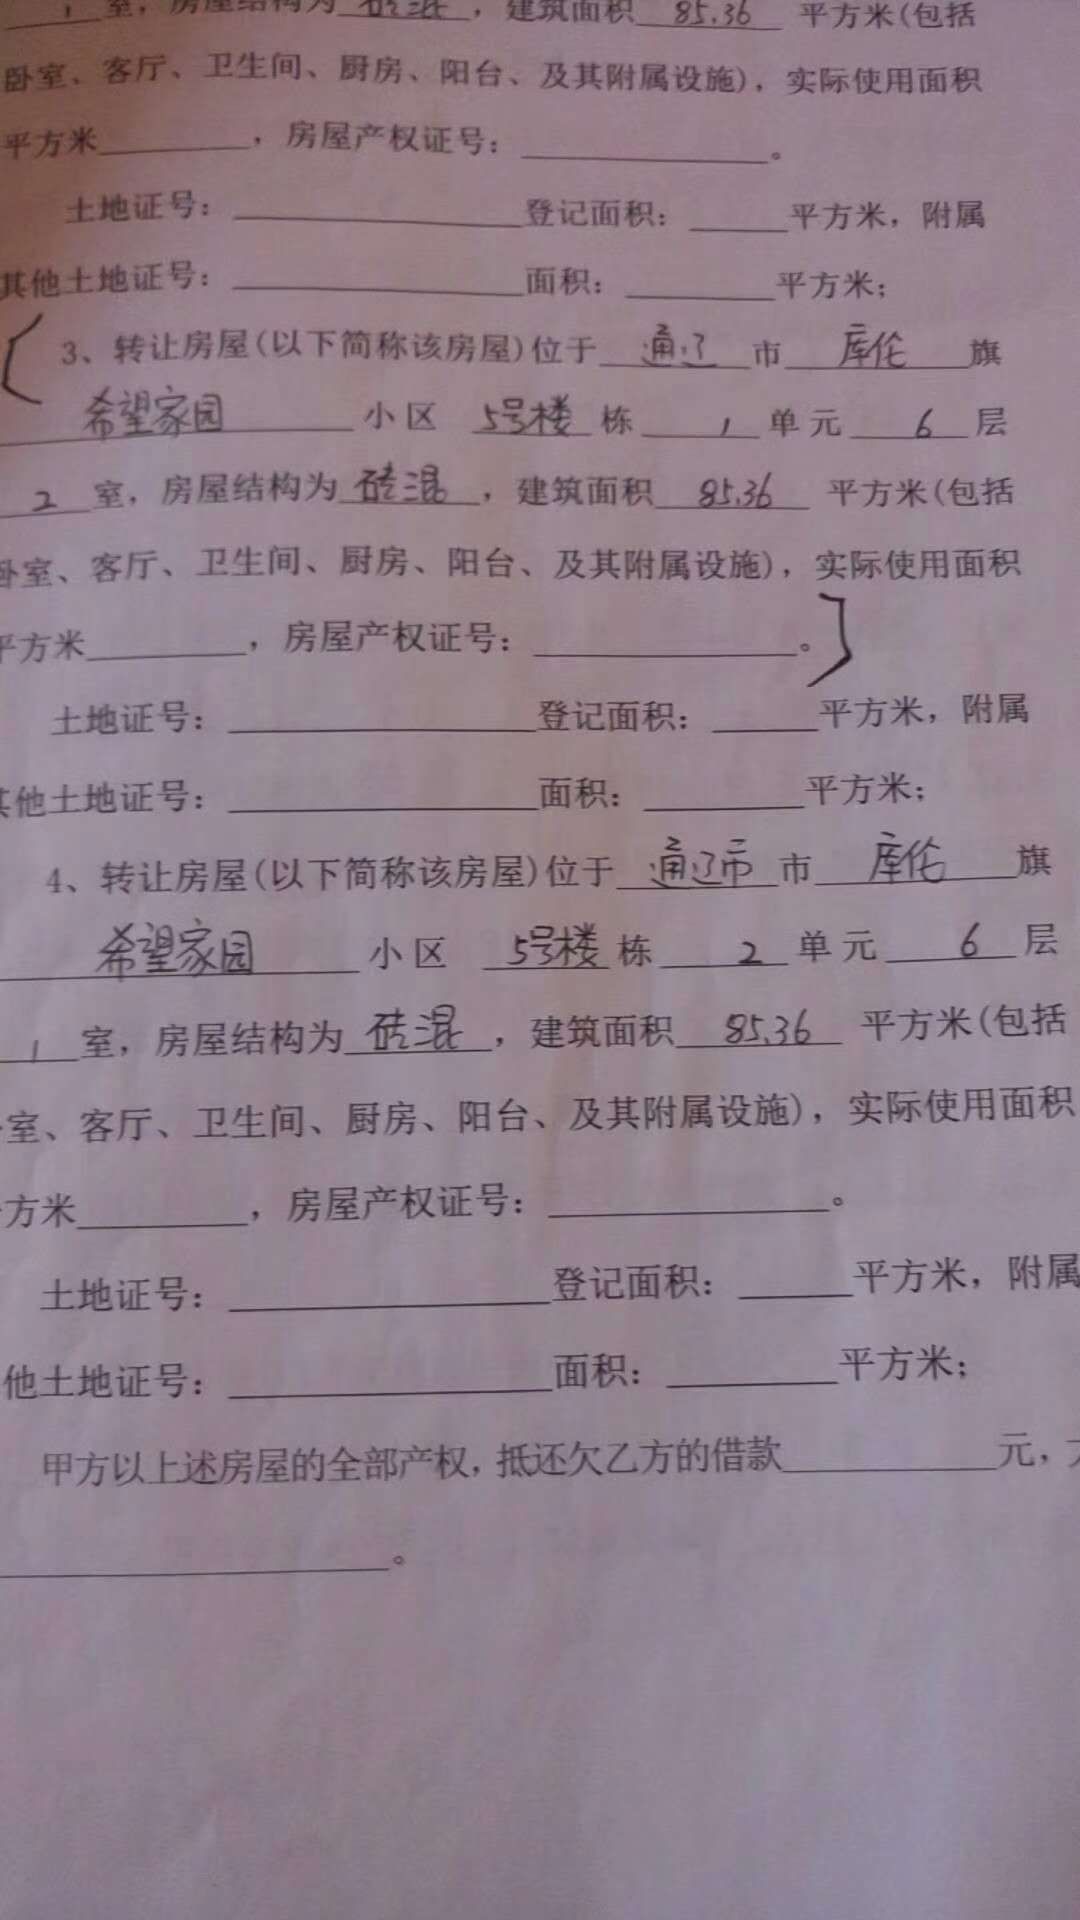 1 室，房屋结构为 砖混 ，建筑面积 85.36 平方米(包括
卧室、客厅、卫生间、厨房、阳台、及其附属设施)，实际使用面积
平方米________，房屋产权证号：____________。
土地证号：______________登记面积：_____平方米，附属
其他土地证号：______________面积：_______平方米；
[3、转让房屋(以下简称该房屋)位于 通辽 市 库伦 旗
希望家园 小区 5号楼 栋 1 单元 6 层
2 室，房屋结构为 砖混 ，建筑面积 85.36 平方米(包括
卧室、客厅、卫生间、厨房、阳台、及其附属设施)，实际使用面积
平方米________，房屋产权证号：____________。]
土地证号：______________登记面积：_____平方米，附属
其他土地证号：______________面积：_______平方米；
4、转让房屋(以下简称该房屋)位于 通辽市 市 库伦 旗
希望家园 小区 5号楼 栋 2 单元 6 层
1 室，房屋结构为 砖混 ，建筑面积 85.36 平方米(包括
室、客厅、卫生间、厨房、阳台、及其附属设施)，实际使用面积
方米________，房屋产权证号：____________。
土地证号：______________登记面积：_____平方米，附属
他土地证号：______________面积：_______平方米；
甲方以上述房屋的全部产权，抵还欠乙方的借款__________元，
__________________。